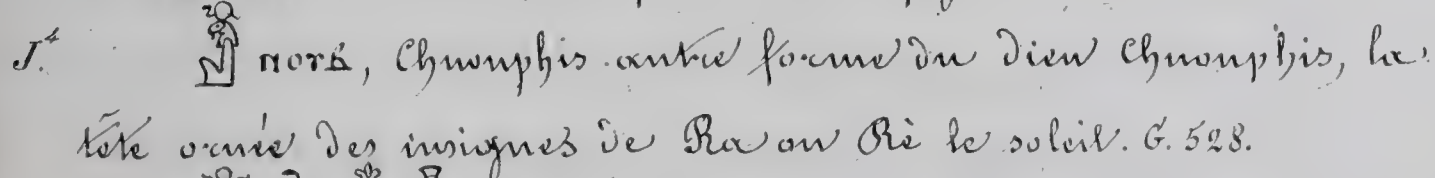 J.4 ⲛⲟⲩⲃ, Chnouphis autre forme du Dieu Chnouphis, la
tête ornée des insignes de Ra ou Rè le soleil. G. 528.